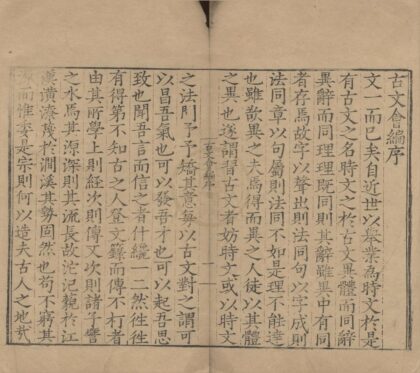 古文會編序
文一而已矣自近世以舉業為時文於是
有古文之名時文之於古文異體而同辭
異辭而同理理既同則其辭雖異中有同
者存焉故字以聲出則法同句以字成則
法同章以句屬則法同不如是理不能達
也雖欲異之夫焉得而異之人徒以其體
之異也遂謂習古文者妨時文或以時文
古文會編序
一
之法門予予矯其意每以古文對之謂可
以昌吾氣也可以發吾才也可以起吾思
致也聞吾言而信之者什纔一二然徃徃
有得第不知古之人登文籙而傳不朽者
由其所學上則經次則傳又次則諸子譬
之水焉其源深則其流長故沱汜範於江
漢瀵潦涘於澗溪其勢固然也苟不窮其
源而惟委是宗則何以造夫古人之地哉